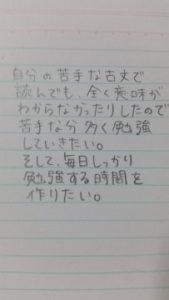 自分の苦手な古文で
読んでも、全く意味が
わからなかったりしたので
苦手な分多く勉強
していきたい。
そして、毎日しっかり
勉強する時間を
作りたい。